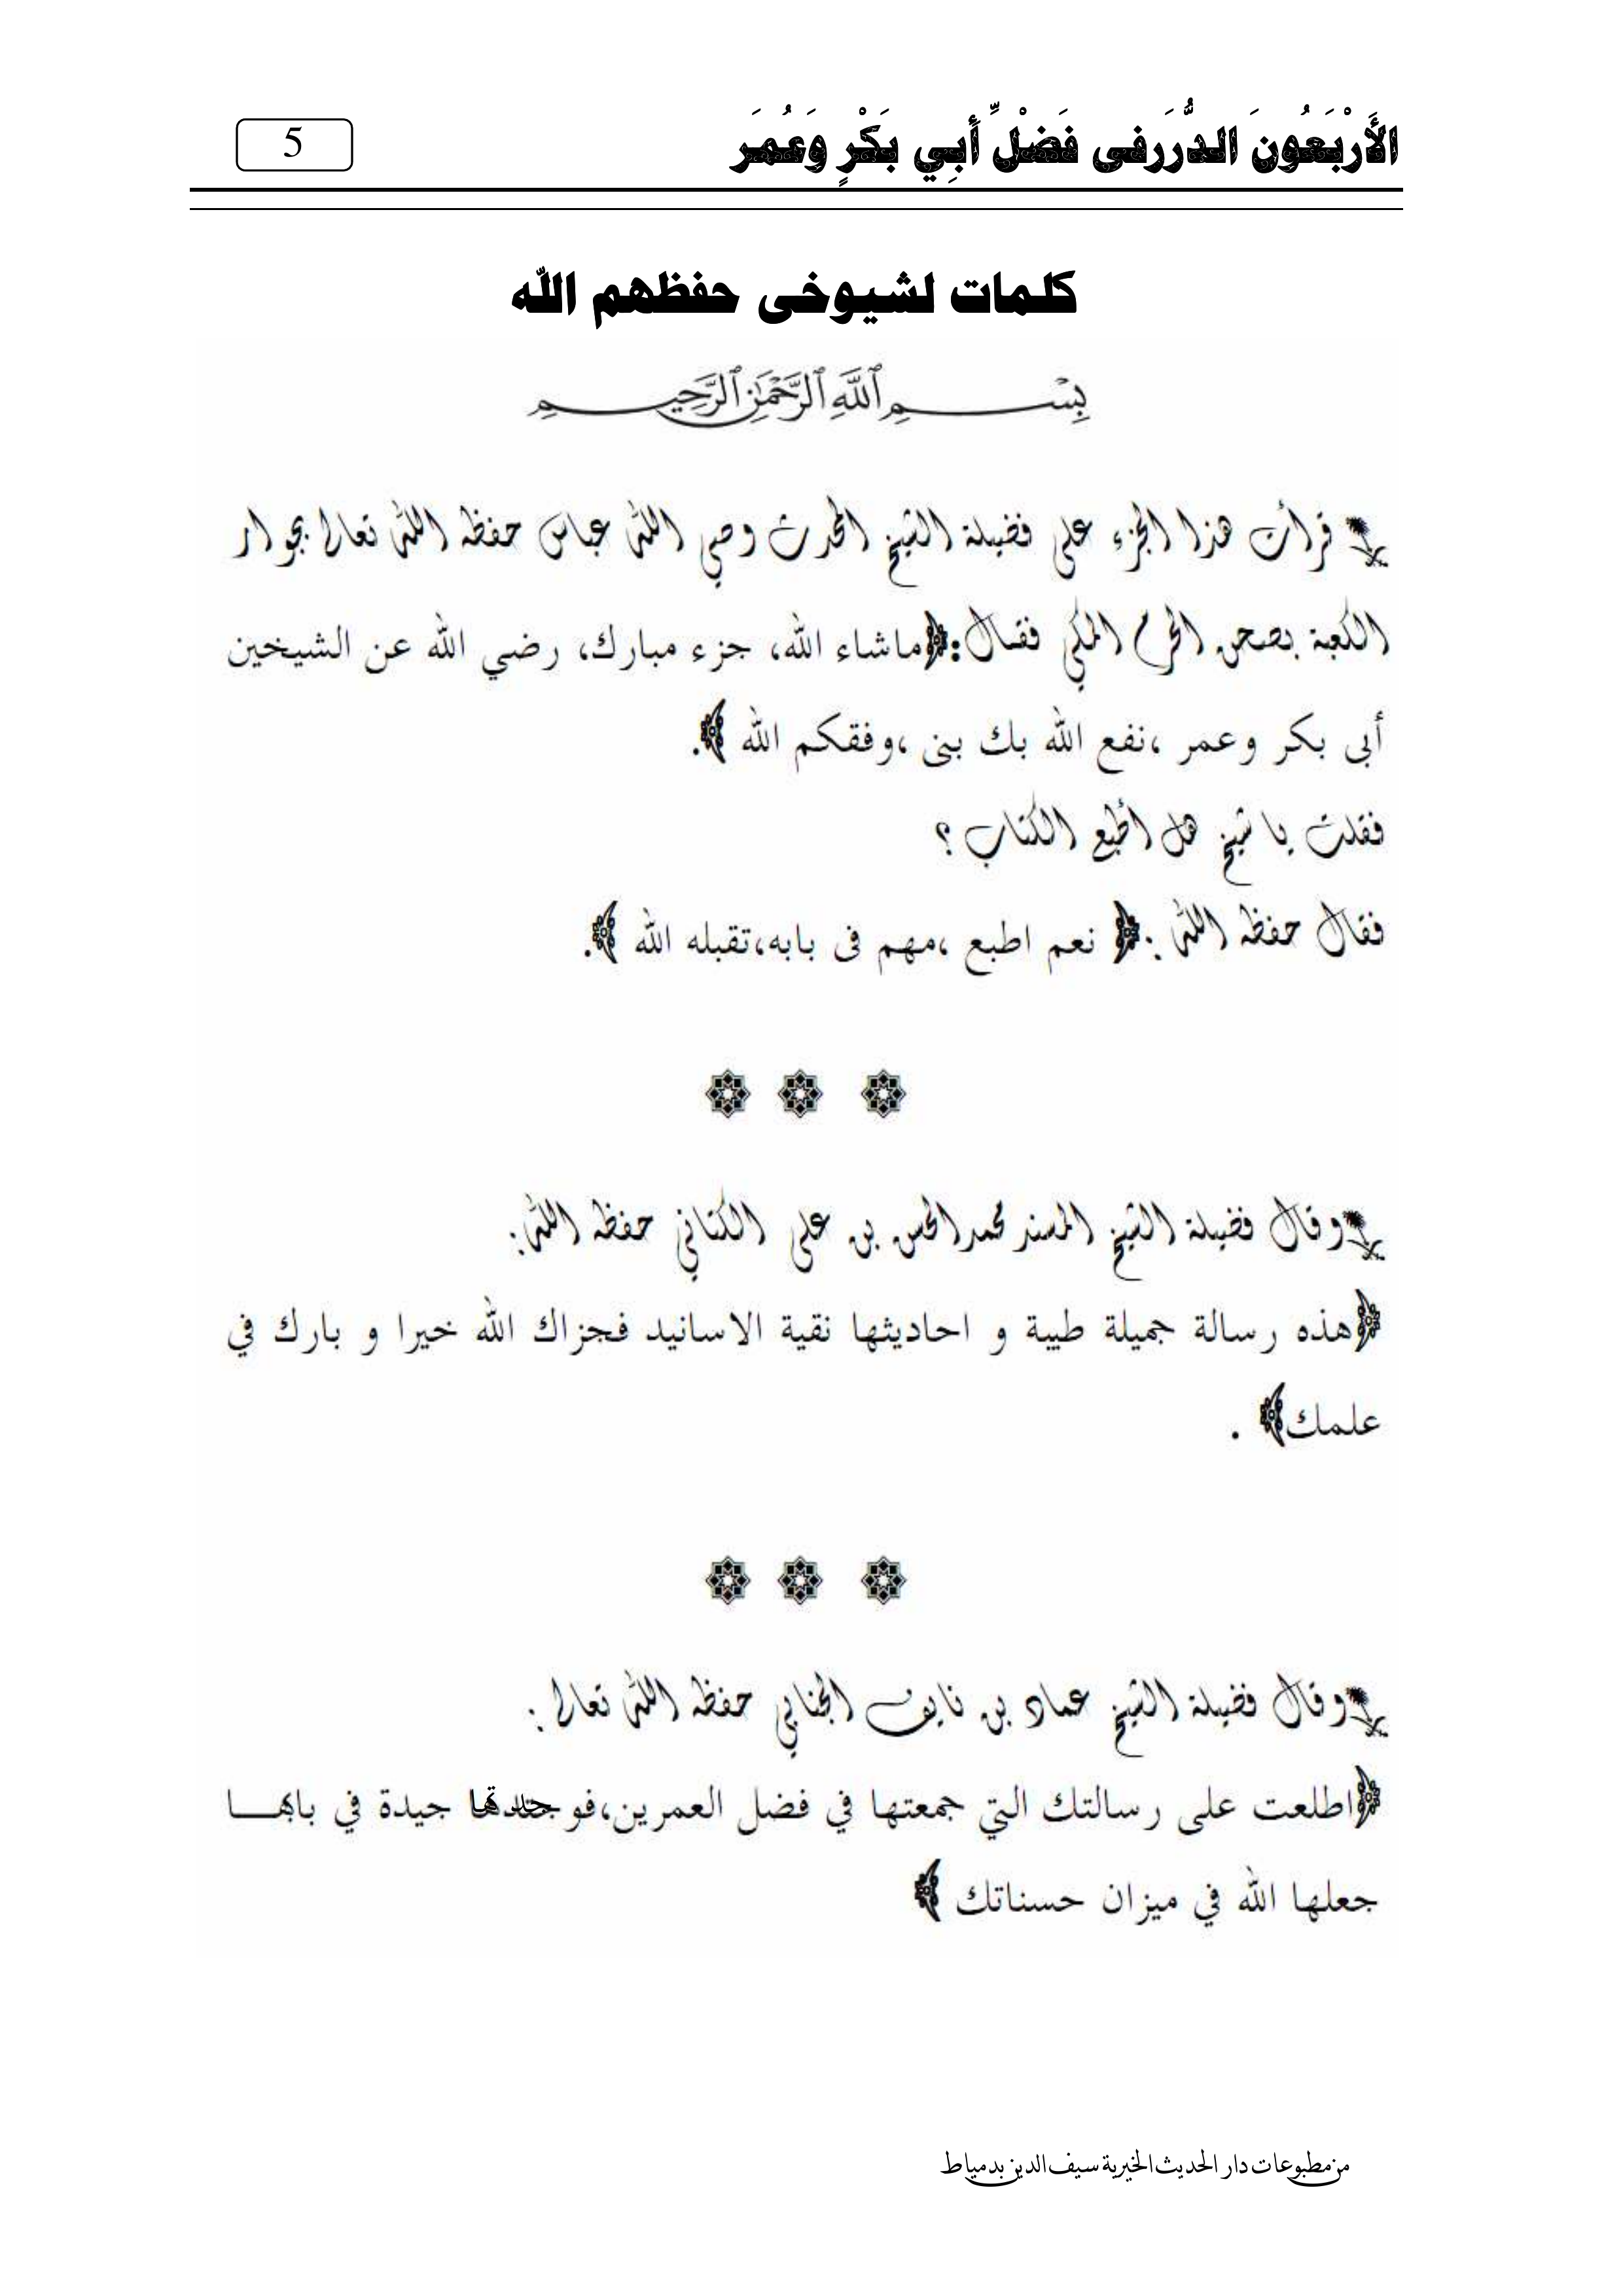 الأَرْبَعُونَ الدُّرَرفى فَضْلِّ أَبِي بَكْرٍ وَعُمَرَ
5
كلمات لشيوخى حفظهم الله
بِسْمِ ٱللَّهِ ٱلرَّحْمَٰنِ ٱلرَّحِيمِ
قرأت هذا الجزء على فضيلة الشيخ المحدث وصي الله عباس حفظه الله تعالى بجوار
الكعبة بصحن الحرم المكي فقال:﴿ماشاء الله، جزء مبارك، رضي الله عن الشيخين
أبى بكر وعمر ،نفع الله بك بنى ،وفقكم الله ﴾.
فقلت يا شيخ هل أطبع الكتاب ؟
فقال حفظه الله :﴿ نعم اطبع ،مهم فى بابه،تقبله الله ﴾.
وقال فضيلة الشيخ المسند محمدالحسن بن على الكتاني حفظه الله:
﴿هذه رسالة جميلة طيبة و احاديثها نقية الاسانيد فجزاك الله خيرا و بارك في
علمك﴾ .
وقال فضيلة الشيخ عماد بن نايف الجنابي حفظه الله تعالى :
﴿اطلعت على رسالتك التي جمعتها في فضل العمرين،فوجدتها جيدة في بابهـــا
جعلها الله في ميزان حسناتك ﴾
من مطبوعات دار الحديث الخيرية سيف الدين بدمياط